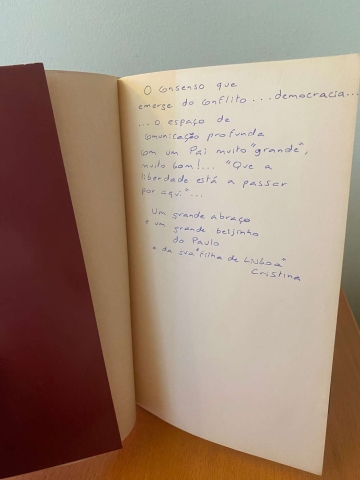 O consenso que
emerge do conflito... democracia...
... o espaço de
comunicação profunda
com um Pai muito "grande",
muito bom!... "Que a
liberdade está a passar
por aqui"...
Um grande abraço
e um grande beijinho
do Paulo
e da sua "filha de Lisboa"
Cristina